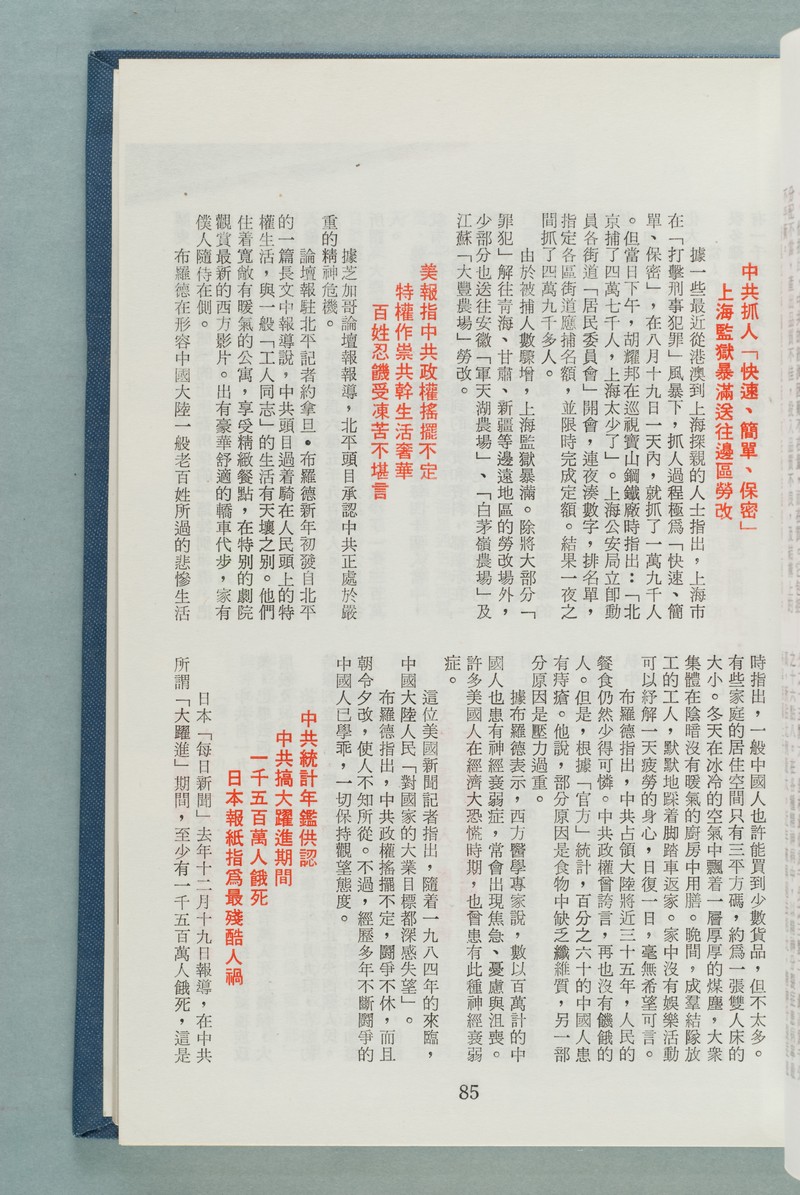 中共抓人「快速、簡單、保密」
上海監獄暴滿送往邊區勞改
據一些最近從港澳到上海探親的人士指出，上海市
在「打擊刑事犯罪」風暴下，抓人過程極爲「快速、簡
單、保密」，在八月十九日一天內，就抓了一萬九千人
。但當日下午，胡耀邦在巡視寶山鋼鐵廠時指出：「北
京捕了四萬七千人，上海太少了」。上海公安局立卽動
員各街道「居民委員會」開會，連夜湊數字，排名單，
指定各區街道應捕名額，並限時完成定額。結果一夜之
間抓了四萬九千多人。
由於被捕人數驟增，上海監獄暴滿。除將大部分「
罪犯」解往靑海、甘肅、新疆等邊遠地區的勞改場外，
少部分也送往安徽「軍天湖農場」、「白茅嶺農場」及
江蘇「大豐農場」勞改。
美報指中共政權搖擺不定
特權作祟共幹生活奢華
百姓忍饑受凍苦不堪言
據芝加哥論壇報報導，北平頭目承認中共正處於嚴
重的精神危機。
論壇報駐北平記者約拿旦•布羅德新年初發自北平
的一篇長文中報導說，中共頭目過着騎在人民頭上的特
權生活，與一般「工人同志」的生活有天壤之別。他們
住着寬敞有暖氣的公寓，享受精緻餐點，在特別的劇院
觀賞最新的西方影片。出有豪華舒適的轎車代步，家有
僕人隨侍在側。
布羅德在形容中國大陸一般老百姓所過的悲慘生活
時指出，一般中國人也許能買到少數貨品，但不太多。
有些家庭的居住空間只有三平方碼，約爲一張雙人床的
大小。冬天在冰冷的空氣中飄着一層厚厚的煤塵，大衆
集體在陰暗沒有暖氣的廚房中用膳。晚間，成羣結隊放
工的工人，默默地踩着脚踏車返家。家中沒有娛樂活動
可以紓解一天疲勞的身心，日復一日，毫無希望可言。
布羅德指出，中共占領大陸將近三十五年，人民的
餐食仍然少得可憐。中共政權曾誇言，再也沒有饑餓的
人。但是，根據「官方」統計，百分之六十的中國人患
有痔瘡。他說，部分原因是食物中缺乏纖維質，另一部
分原因是壓力過重。
據布羅德表示，西方醫學專家說，數以百萬計的中
國人也患有神經衰弱症，常會出現焦急、憂慮與沮喪。
許多美國人在經濟大恐慌時期，也曾患有此種神經衰弱
症。
這位美國新聞記者指出，隨着一九八四年的來臨，
中國大陸人民「對國家的大業目標都深感失望」。
布羅德指出，中共政權搖擺不定，鬪爭不休，而且
朝令夕改，使人不知所從。不過，經歷多年不斷鬪爭的
中國人已學乖，一切保持觀望態度。
中共統計年鑑供認
中共搞大躍進期間
一千五百萬人餓死
日本報紙指爲最殘酷人禍
日本「每日新聞」去年十二月十九日報導，在中共
所謂「大躍進」期間，至少有一千五百萬人餓死，這是
85